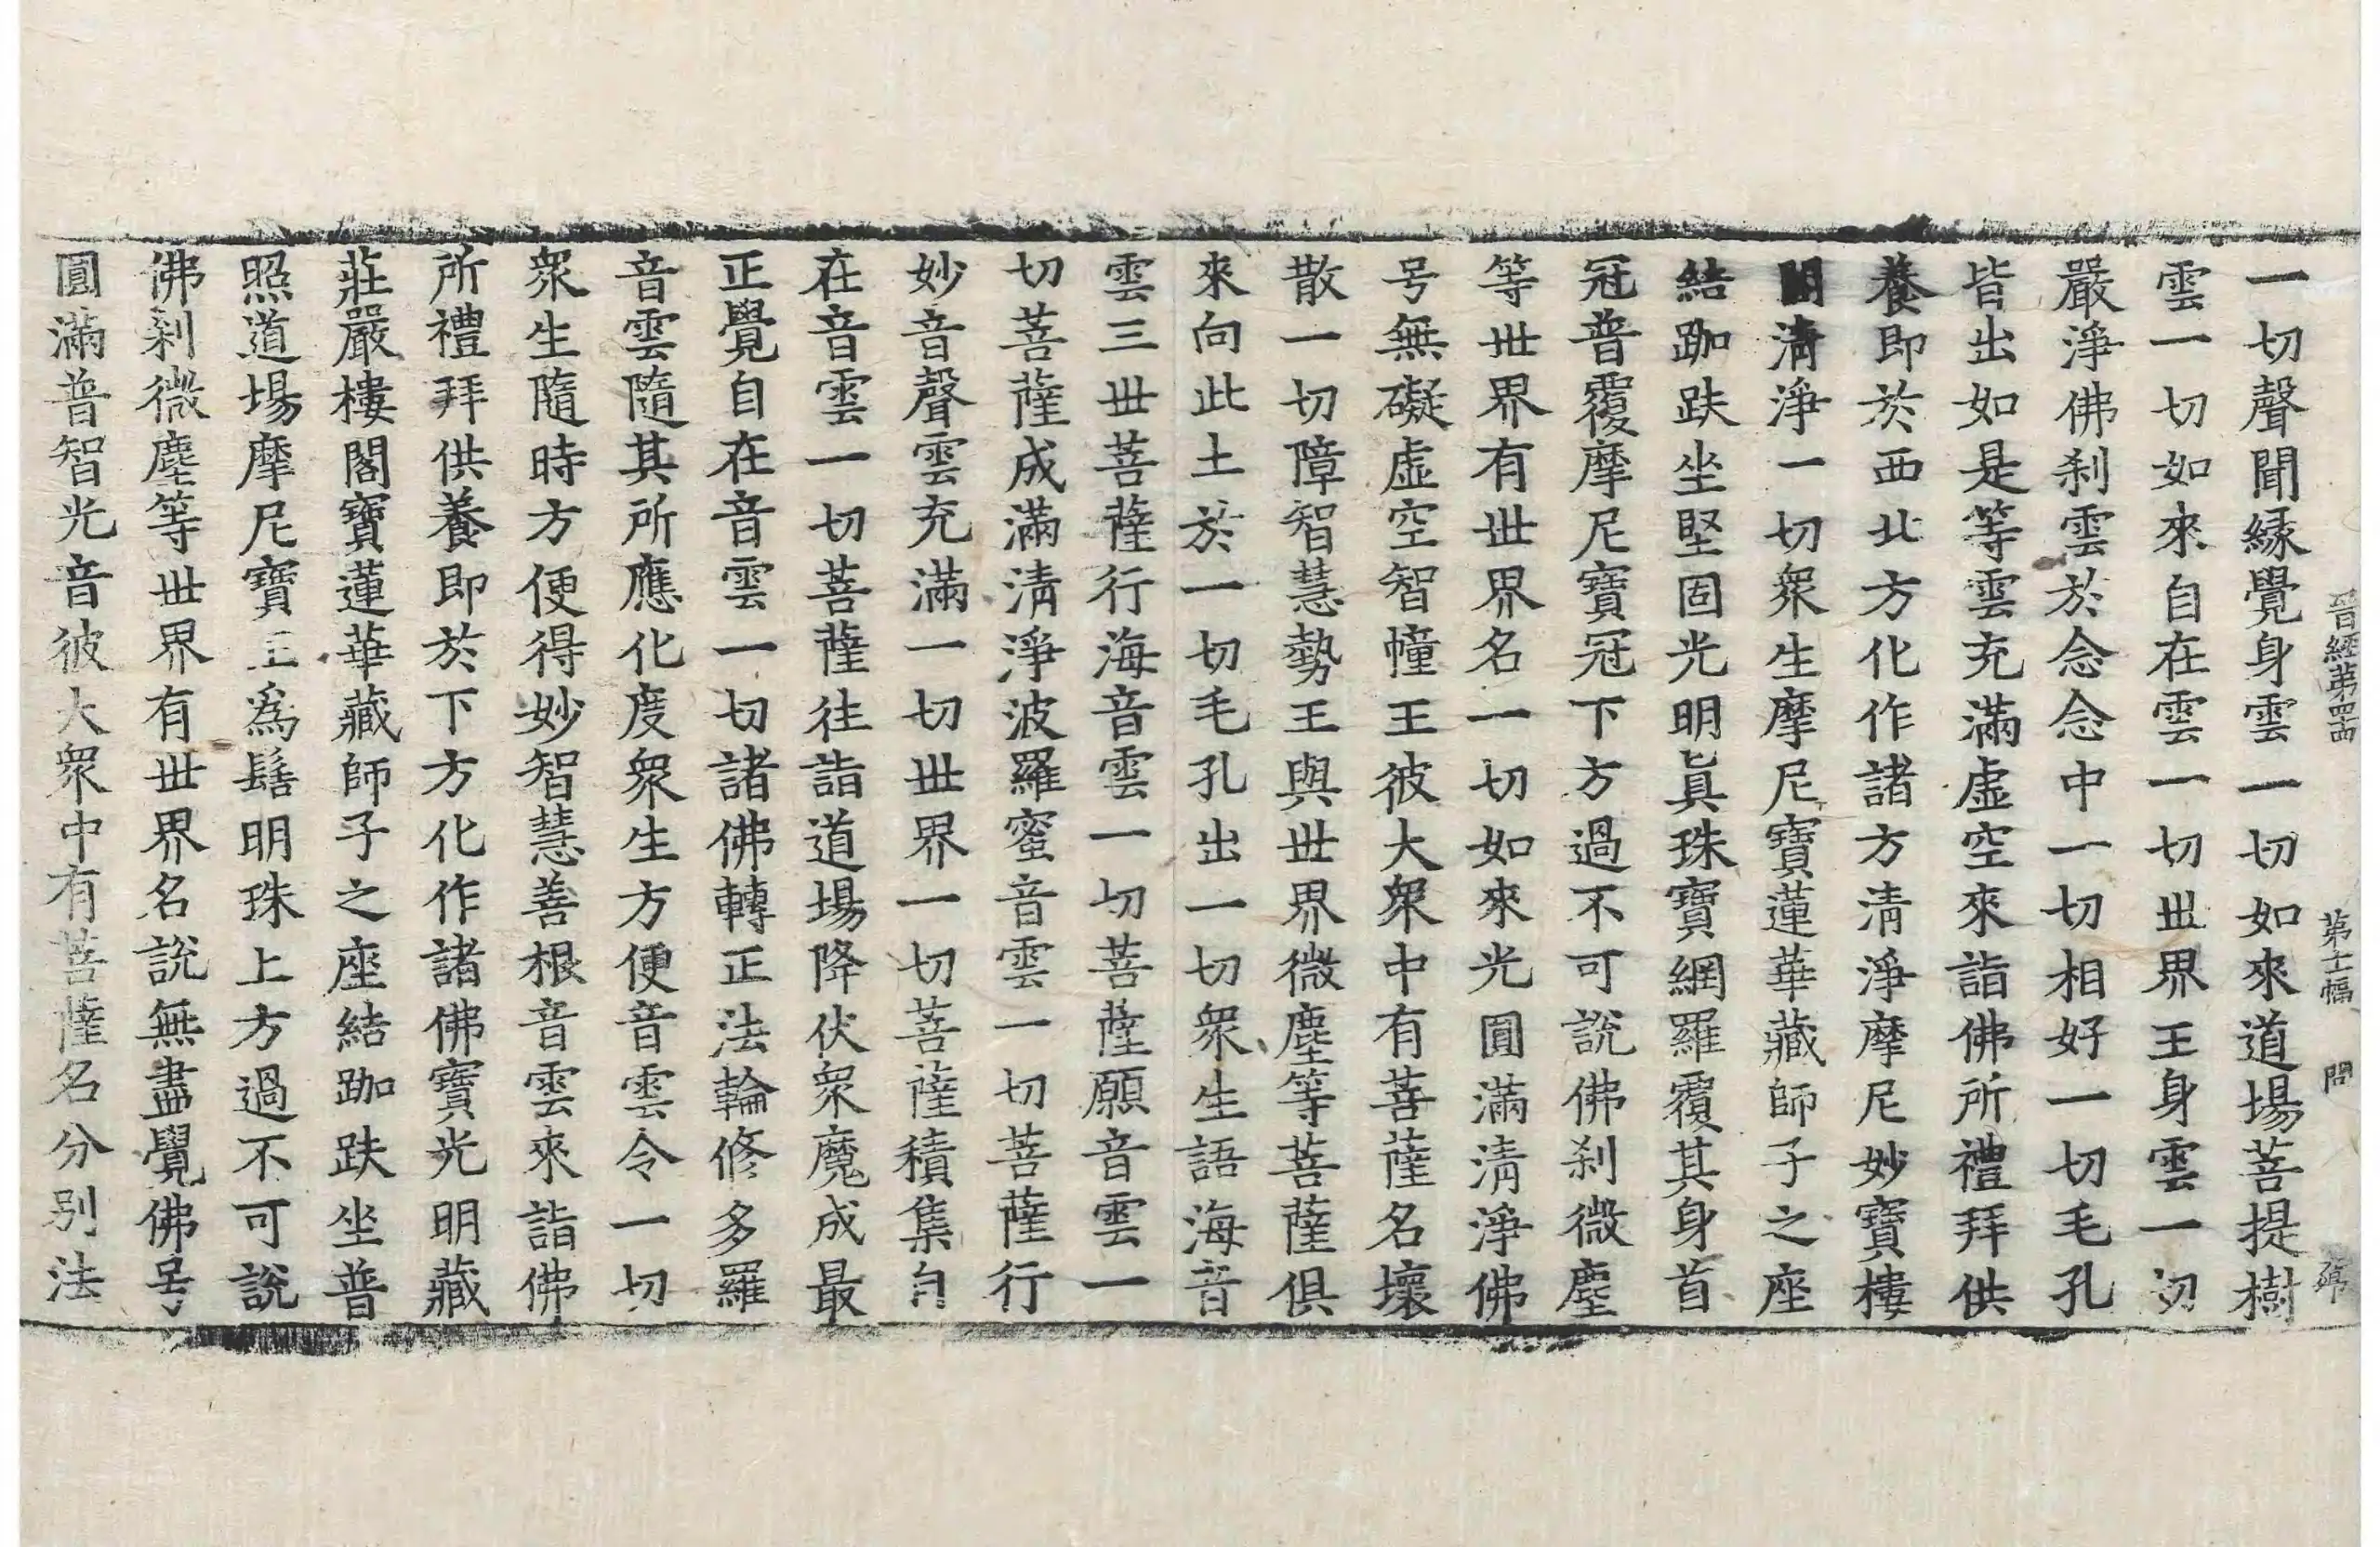 晉經第四十四 第十二幅 問
一切聲聞縁覺身雲一切如來道場菩提樹
雲一切如來自在雲一切世界王身雲一切
嚴淨佛刹雲於念念中一切相好一切毛孔
皆出如是等雲充滿虛空來詣佛所禮拜供
養即於西北方化作諸方清淨摩尼妙寶樓
閣清淨一切衆生摩尼寶蓮華藏師子之座
結跏趺坐堅固光明眞珠寶網羅覆其身首
冠普覆摩尼寶冠下方過不可說佛刹微塵
等世界有世界名一切如來光圓滿清淨佛
号無礙虛空智幢王彼大衆中有菩薩名壞
散一切障智慧勢王與世界微塵等菩薩俱
來向此土於一切毛孔出一切衆生語海音
雲三世菩薩行海音雲一切菩薩願音雲一
切菩薩成滿清淨波羅蜜音雲一切菩薩行
妙音聲雲充滿一切世界一切菩薩積集自
在音雲一切菩薩往詣道場降伏衆魔成最
正覺自在音雲一切諸佛轉正法輪修多羅
音雲隨其所應化度衆生方便音雲令一切
衆生隨時方便得妙智慧善根音雲來詣佛
所禮拜供養即於下方化作諸佛寶光明藏
莊嚴樓閣寶蓮華藏師子之座結跏趺坐普
照道場摩尼寶王爲髻明珠上方過不可說
佛刹微塵等世界有世界名說無盡覺佛号
圓滿普智光音彼大衆中有菩薩名分別法